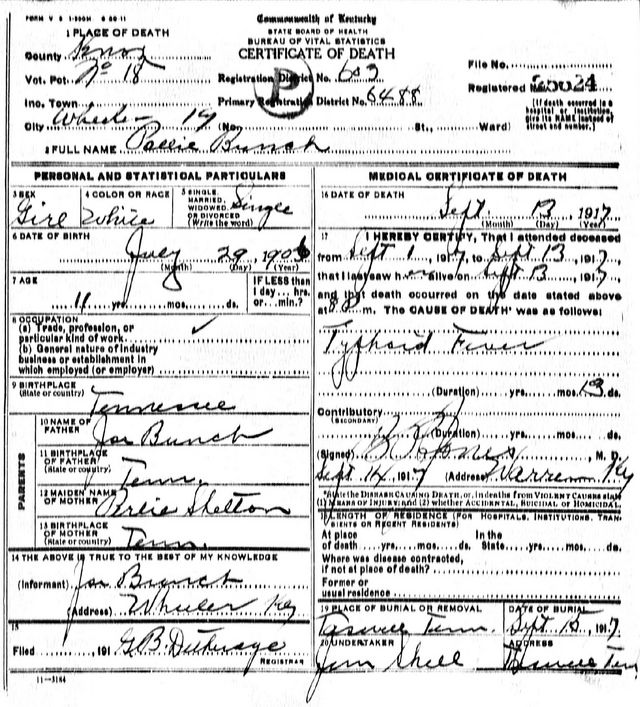 FORM V S 1-200M 6 20 11
Commonwealth of Kentucky
STATE BOARD OF HEALTH
BUREAU OF VITAL STATISTICS
CERTIFICATE OF DEATH
1 PLACE OF DEATH
County Knox
Vot. Pct. No 18
Ino. Town
City Wheeler Ky (No. St., Ward)
Registration District No. 603
Primary Registration District No. 6488
P
File No.
Registered No. 25024
[If death occurred in a hospital or institution, give its NAME instead of street and number.]
2 FULL NAME Pallie Bunch
PERSONAL AND STATISTICAL PARTICULARS
3 SEX
Girl
4 COLOR OR RACE
White
5 SINGLE, MARRIED, WIDOWED, OR DIVORCED (Write the word)
Single
6 DATE OF BIRTH
July 29, 1906
(Month) (Day) (Year)
7 AGE
11 yrs. mos. ds.
IF LESS than 1 day... hrs. or... min.?
8 OCCUPATION
(a) Trade, profession, or particular kind of work ✓
(b) General nature of industry business or establishment in which employed (or employer)
9 BIRTHPLACE
(State or country)
Tennessee
PARENTS
10 NAME OF FATHER
Joe Bunch
11 BIRTHPLACE OF FATHER
(State or country)
Tenn.
12 MAIDEN NAME OF MOTHER
Perlie Shelton
13 BIRTHPLACE OF MOTHER
(State or country)
Tenn.
14 THE ABOVE IS TRUE TO THE BEST OF MY KNOWLEDGE
(Informant) Joe Bunch
(Address) Wheeler Ky
15
Filed, 191 G.B.
REGISTRAR
11-3184
MEDICAL CERTIFICATE OF DEATH
16 DATE OF DEATH
Sept. 13, 1917
(Month) (Day) (Year)
17 I HEREBY CERTIFY, That I attended deceased
from Sept 1, 1917, to Sept 13, 1917,
that I last saw her alive on Sept 13, 1917,
and that death occurred on the date stated above
at 8 a.m. The CAUSE OF DEATH* was as follows:
Typhoid Fever
(Duration) yrs. mos. 13 ds.
Contributory
(SECONDARY)
(Duration) yrs. mos. ds.
(Signed) Jones, M. D.
Sept. 14, 1917 (Address) Warren Ky
*State the DISEASE CAUSING DEATH, or, in deaths from VIOLENT CAUSES state
(1) MEANS OF INJURY, and (2) whether ACCIDENTAL, SUICIDAL or HOMICIDAL.
18 LENGTH OF RESIDENCE (FOR HOSPITALS, INSTITUTIONS, TRANSIENTS OR RECENT RESIDENTS)
At place of death yrs. mos. ds. In the State yrs. mos. ds.
Where was disease contracted, if not at place of death?
Former or usual residence
19 PLACE OF BURIAL OR REMOVAL
Tazwell Tenn.
DATE OF BURIAL
Sept. 15, 1917
20 UNDERTAKER
Jim Shell
ADDRESS
Tazwell Ten